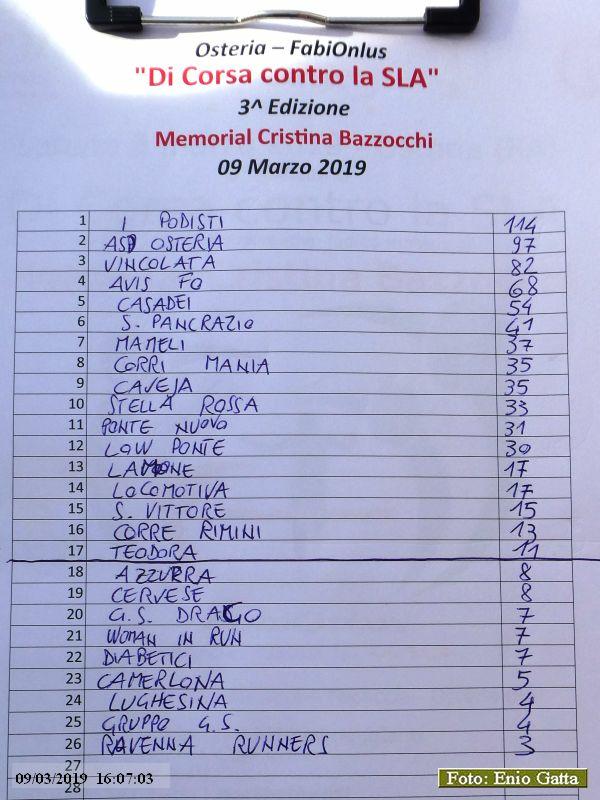 Osteria – FabiOnlus
"Di Corsa contro la SLA"
3^ Edizione
Memorial Cristina Bazzocchi
09 Marzo 2019
1 I PODISTI 114
2 ASD OSTERIA 97
3 VINCOLATA 82
4 AVIS FO 68
5 CASADEI 54
6 S. PANCRAZIO 41
7 MAMELI 37
8 CORRI MANIA 35
9 CAVEJA 35
10 STELLA ROSSA 33
11 PONTE NUOVO 31
12 LOW PONTE 30
13 LAMONE 17
14 LOCOMOTIVA 17
15 S. VITTORE 15
16 CORRE RIMINI 13
17 TEODORA 11
18 AZZURRA 8
19 CERVESE 8
20 G.S. DRAGO 7
21 WOMAN IN RUN 7
22 DIABETICI 7
23 CAMERLONA 5
24 LUGHESINA 4
25 GRUPPO G.S. 4
26 RAVENNA RUNNERS 3
27
28
09/03/2019 16:07:03
Foto: Enio Gatta